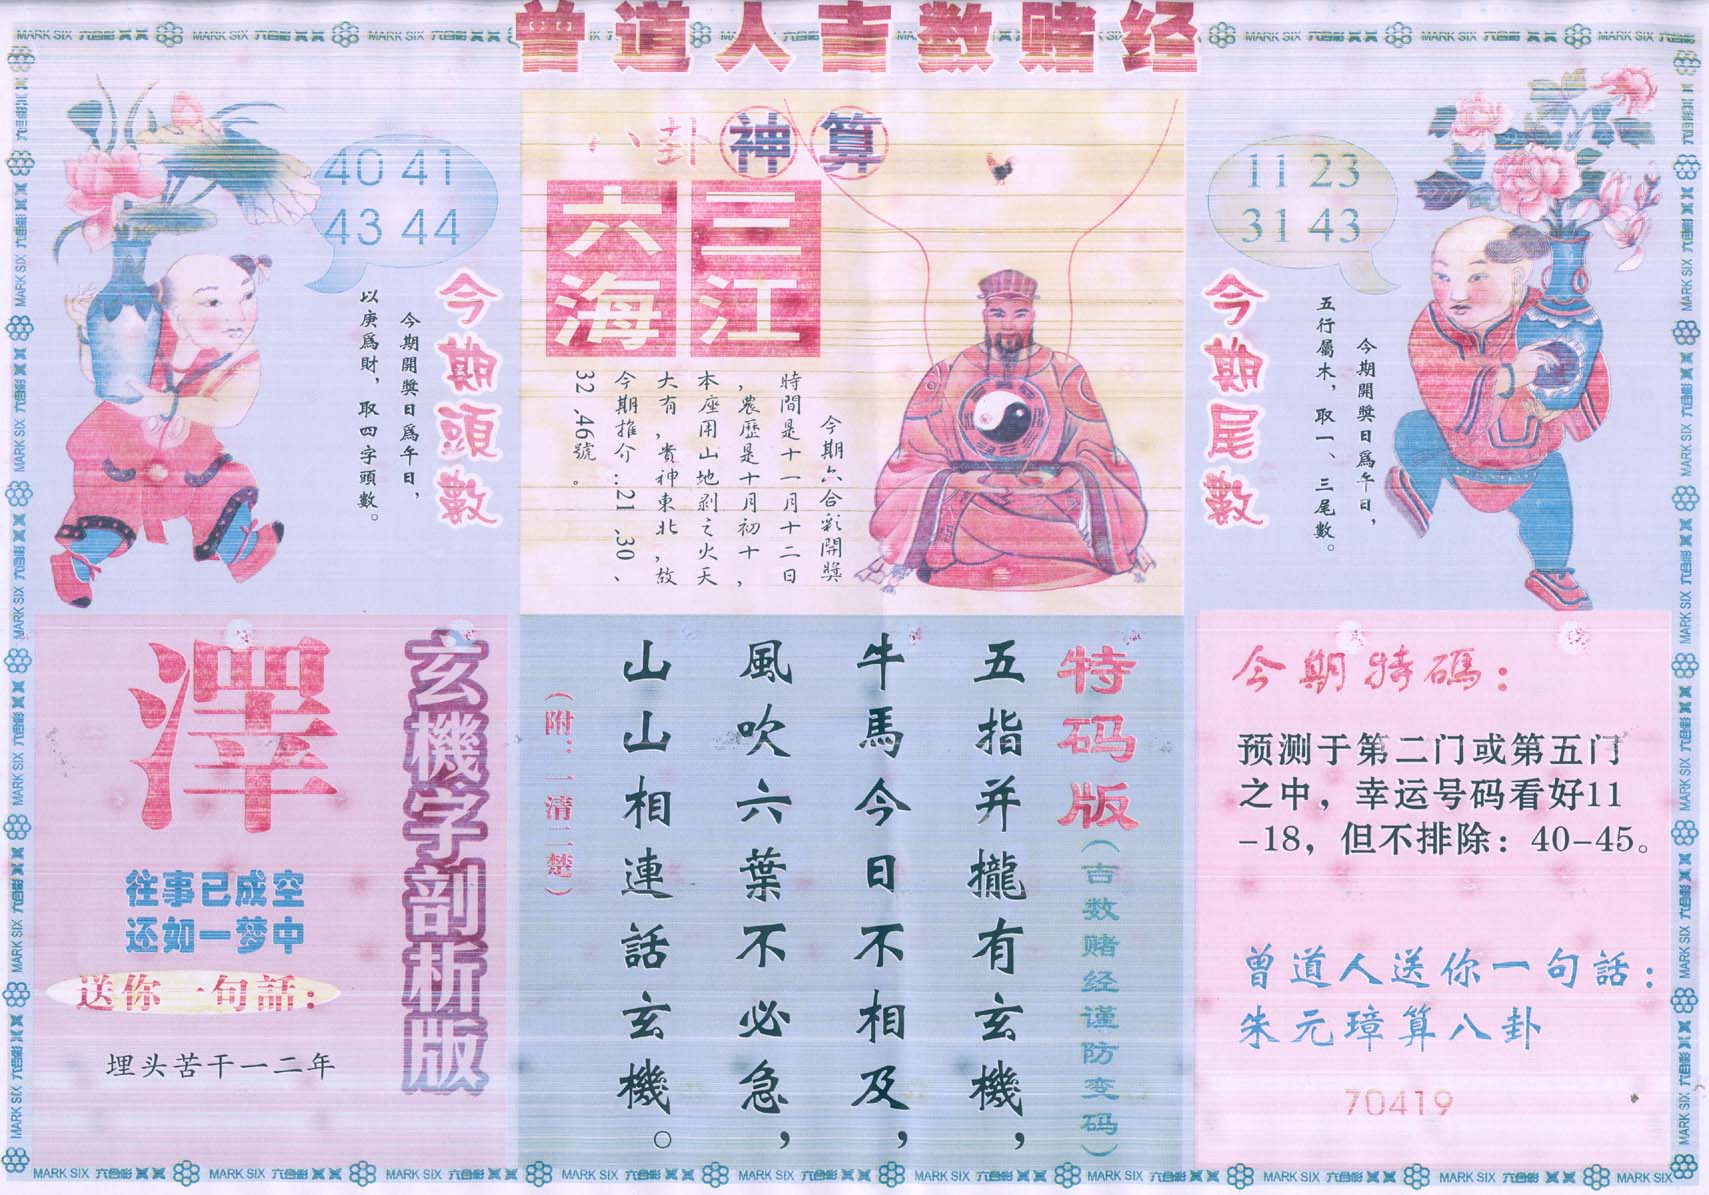 曾道人吉数赌经
40 41
43 44
今期頭數
今期開獎日爲午日，
以庚爲財，取四字頭數。
八卦神算
三江
六海
今期六合彩開獎
時間是十一月十二日
，農歷是十月初十，
本座用山地剥之火天
大有，貴神東北，故
今期推介：21、30、
32、46號。
11 23
31 43
今期尾數
今期開獎日爲午日，
五行屬木，取一、三尾數。
玄機字剖析版
澤
往事已成空
还如一梦中
送你一句話：
埋头苦干一二年
特码版（吉数赌经谨防变码）
五指并攏有玄機，
牛馬今日不相及，
風吹六葉不必急，
山山相連話玄機。
（附：一清二楚）
今期特碼：
预测于第二门或第五门
之中，幸运号码看好11
-18，但不排除：40-45。
曾道人送你一句話：
朱元璋算八卦
70419
MARK SIX 六合彩